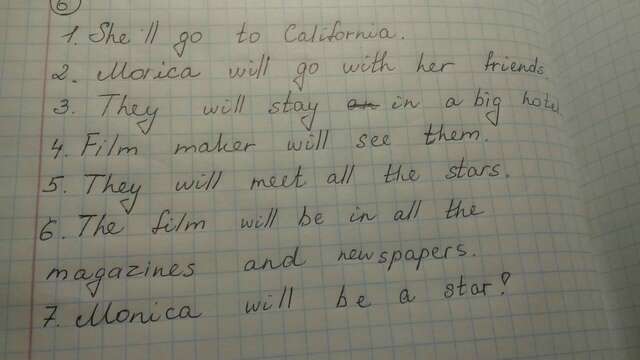 6
1. She'll go to California.
2. Monica will go with her friends.
3. They will stay in a big hotel
4. Film maker will see them.
5. They will meet all the stars.
6. The film will be in all the
magazines and newspapers.
7. Monica will be a star!